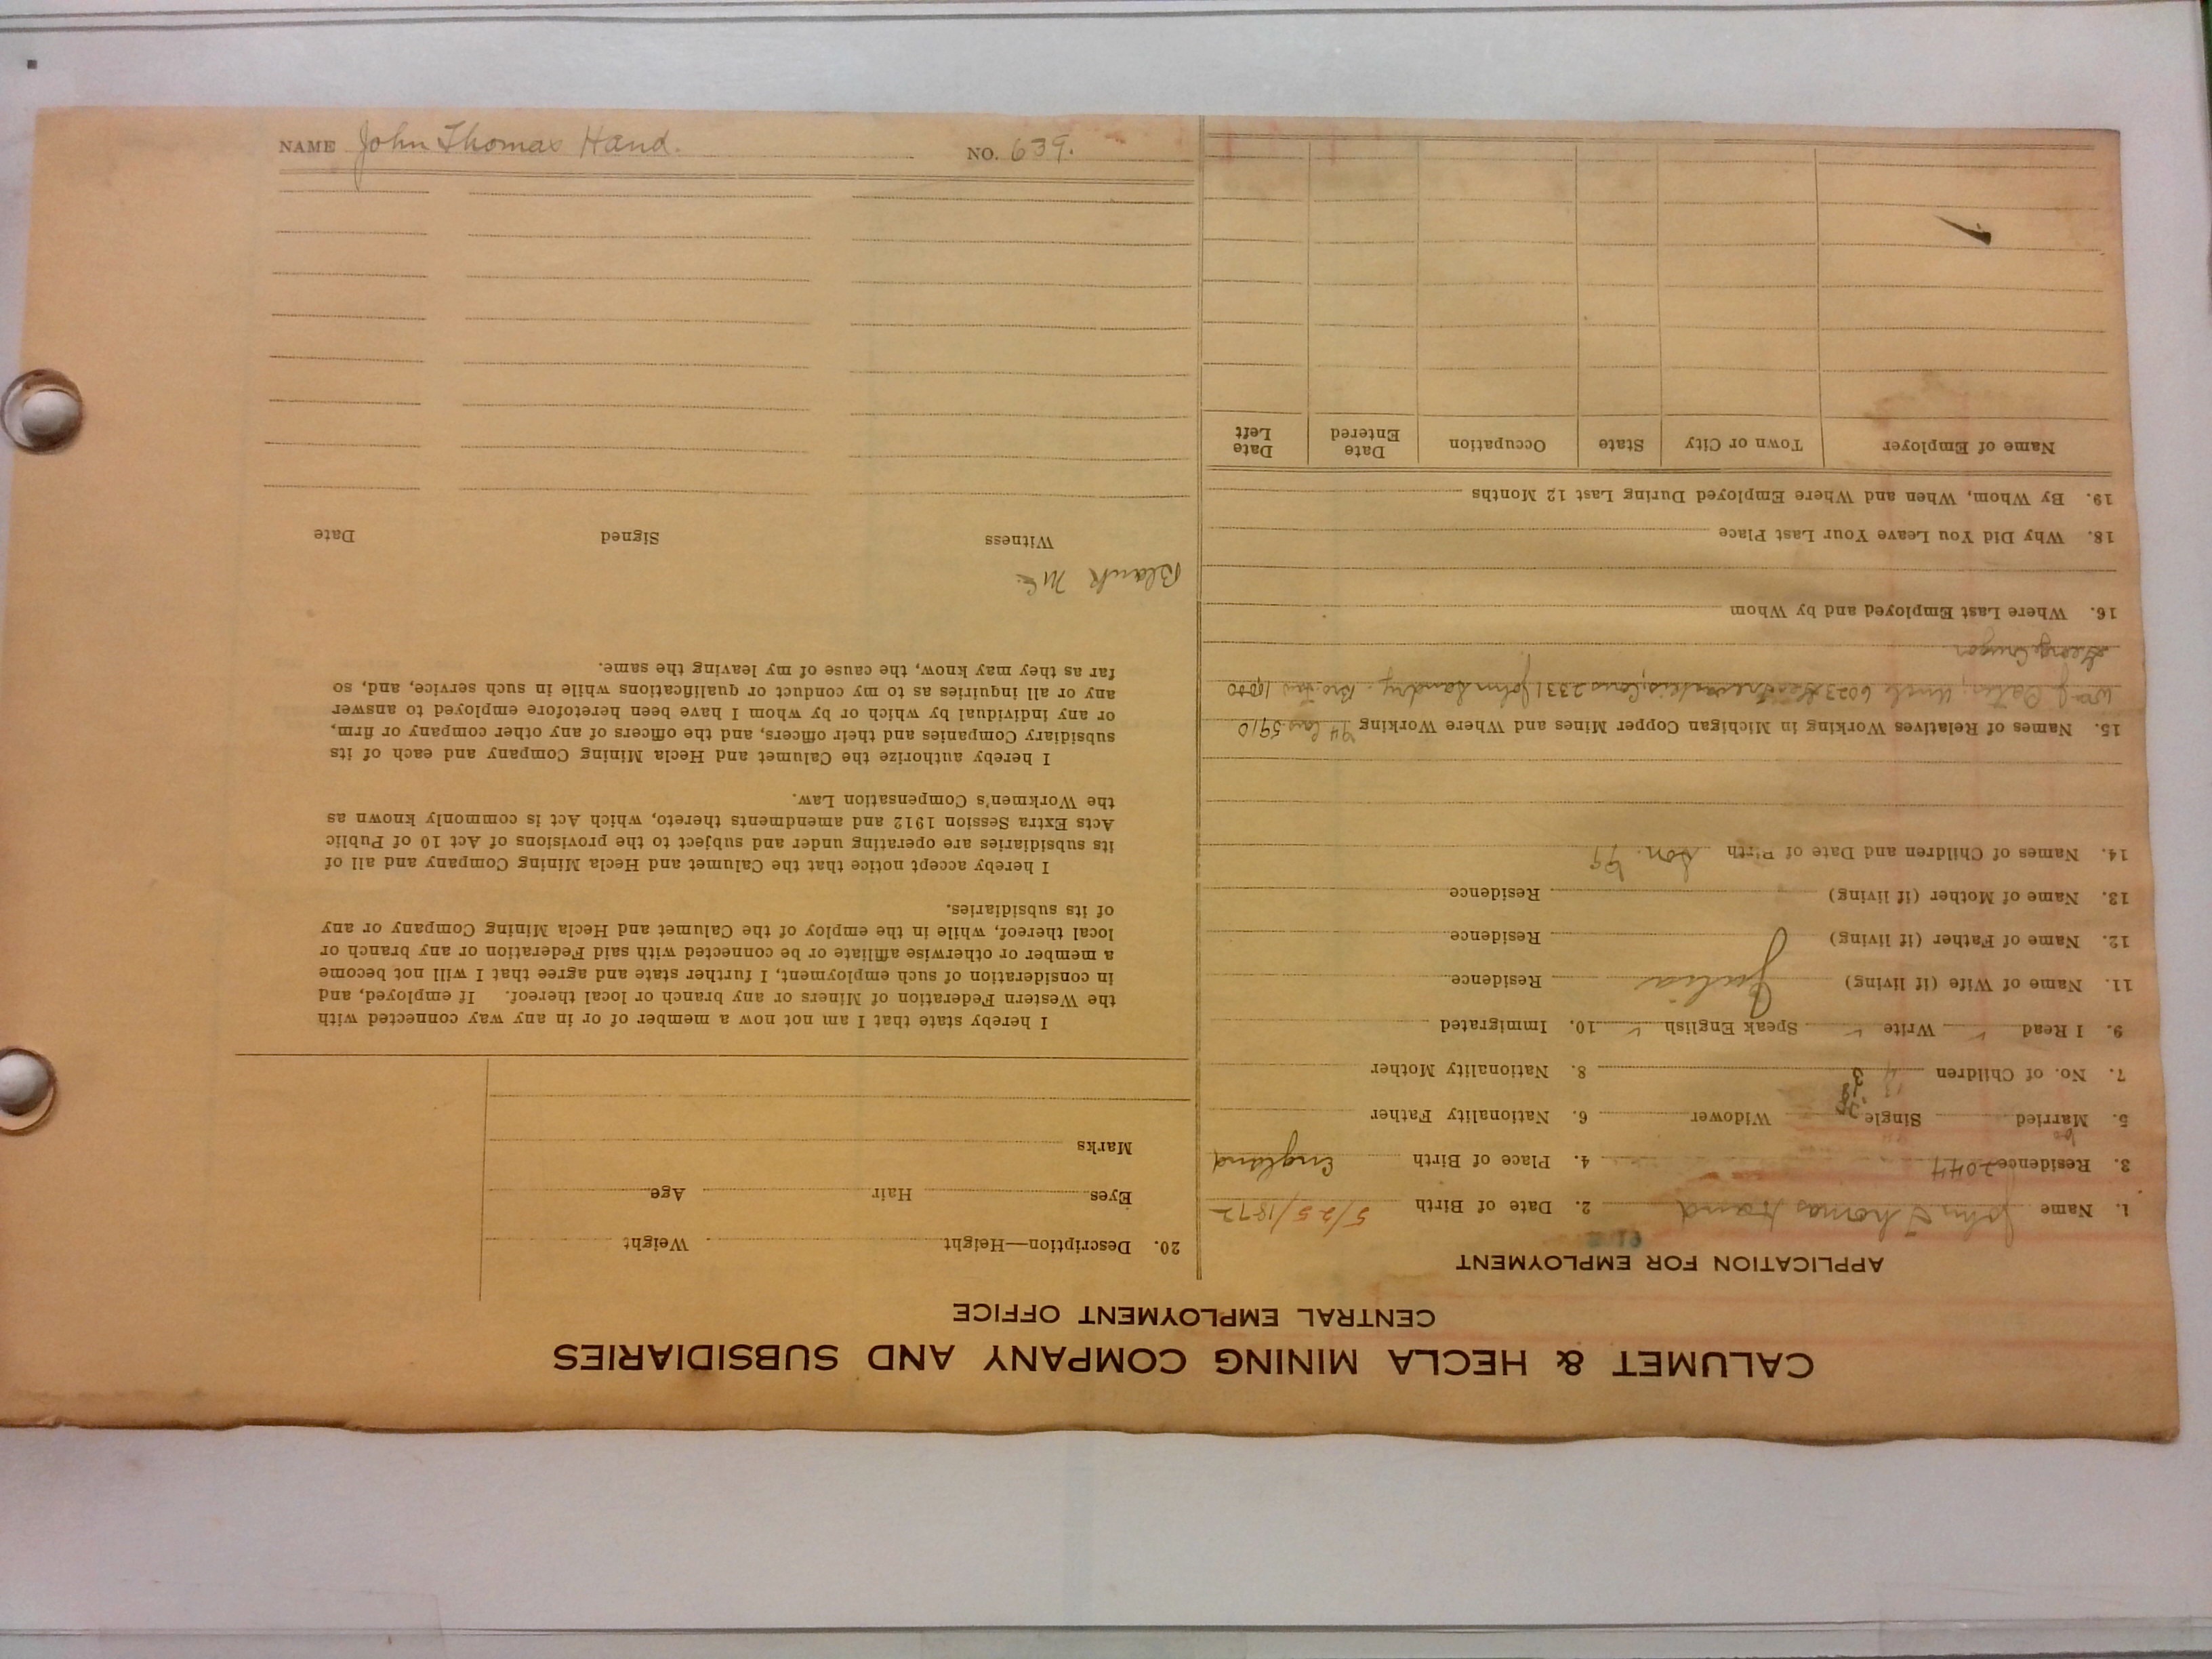 NAME John Thomas Hand. NO. 639.
CALUMET & HECLA MINING COMPANY AND SUBSIDIARIES
CENTRAL EMPLOYMENT OFFICE
APPLICATION FOR EMPLOYMENT
1. Name John Thomas Hand 2. Date of Birth 5/25/1872
3. Residence 2044 4. Place of Birth England
5. Married Single Widower 6. Nationality Father
7. No. of Children 8. Nationality Mother
9. I Read ✓ Write ✓ Speak English ✓ 10. Immigrated
11. Name of Wife (if living) Julia Residence
12. Name of Father (if living) Residence
13. Name of Mother (if living) Residence
14. Names of Children and Date of Birth Son.
15. Names of Relatives Working in Michigan Copper Mines and Where Working 5910
Uncle 6023 2331 John 
George
16. Where Last Employed and by Whom
18. Why Did You Leave Your Last Place
19. By Whom, When and Where Employed During Last 12 Months
Name of Employer Town or City State Occupation Date Entered Date Left
20. Description—Height Weight
Eyes Hair Age
Marks
I hereby state that I am not now a member of or in any way connected with
the Western Federation of Miners or any branch or local thereof. If employed, and
in consideration of such employment, I further state and agree that I will not become
a member or otherwise affiliate or be connected with said Federation or any branch or
local thereof, while in the employ of the Calumet and Hecla Mining Company or any
of its subsidiaries.
I hereby accept notice that the Calumet and Hecla Mining Company and all of
its subsidiaries are operating under and subject to the provisions of Act 10 of Public
Acts Extra Session 1912 and amendments thereto, which Act is commonly known as
the Workmen's Compensation Law.
I hereby authorize the Calumet and Hecla Mining Company and each of its
subsidiary Companies and their officers, and the officers of any other company or firm,
or any individual by which or by whom I have been heretofore employed to answer
any or all inquiries as to my conduct or qualifications while in such service, and, so
far as they may know, the cause of my leaving the same.
Blank
Witness Signed Date